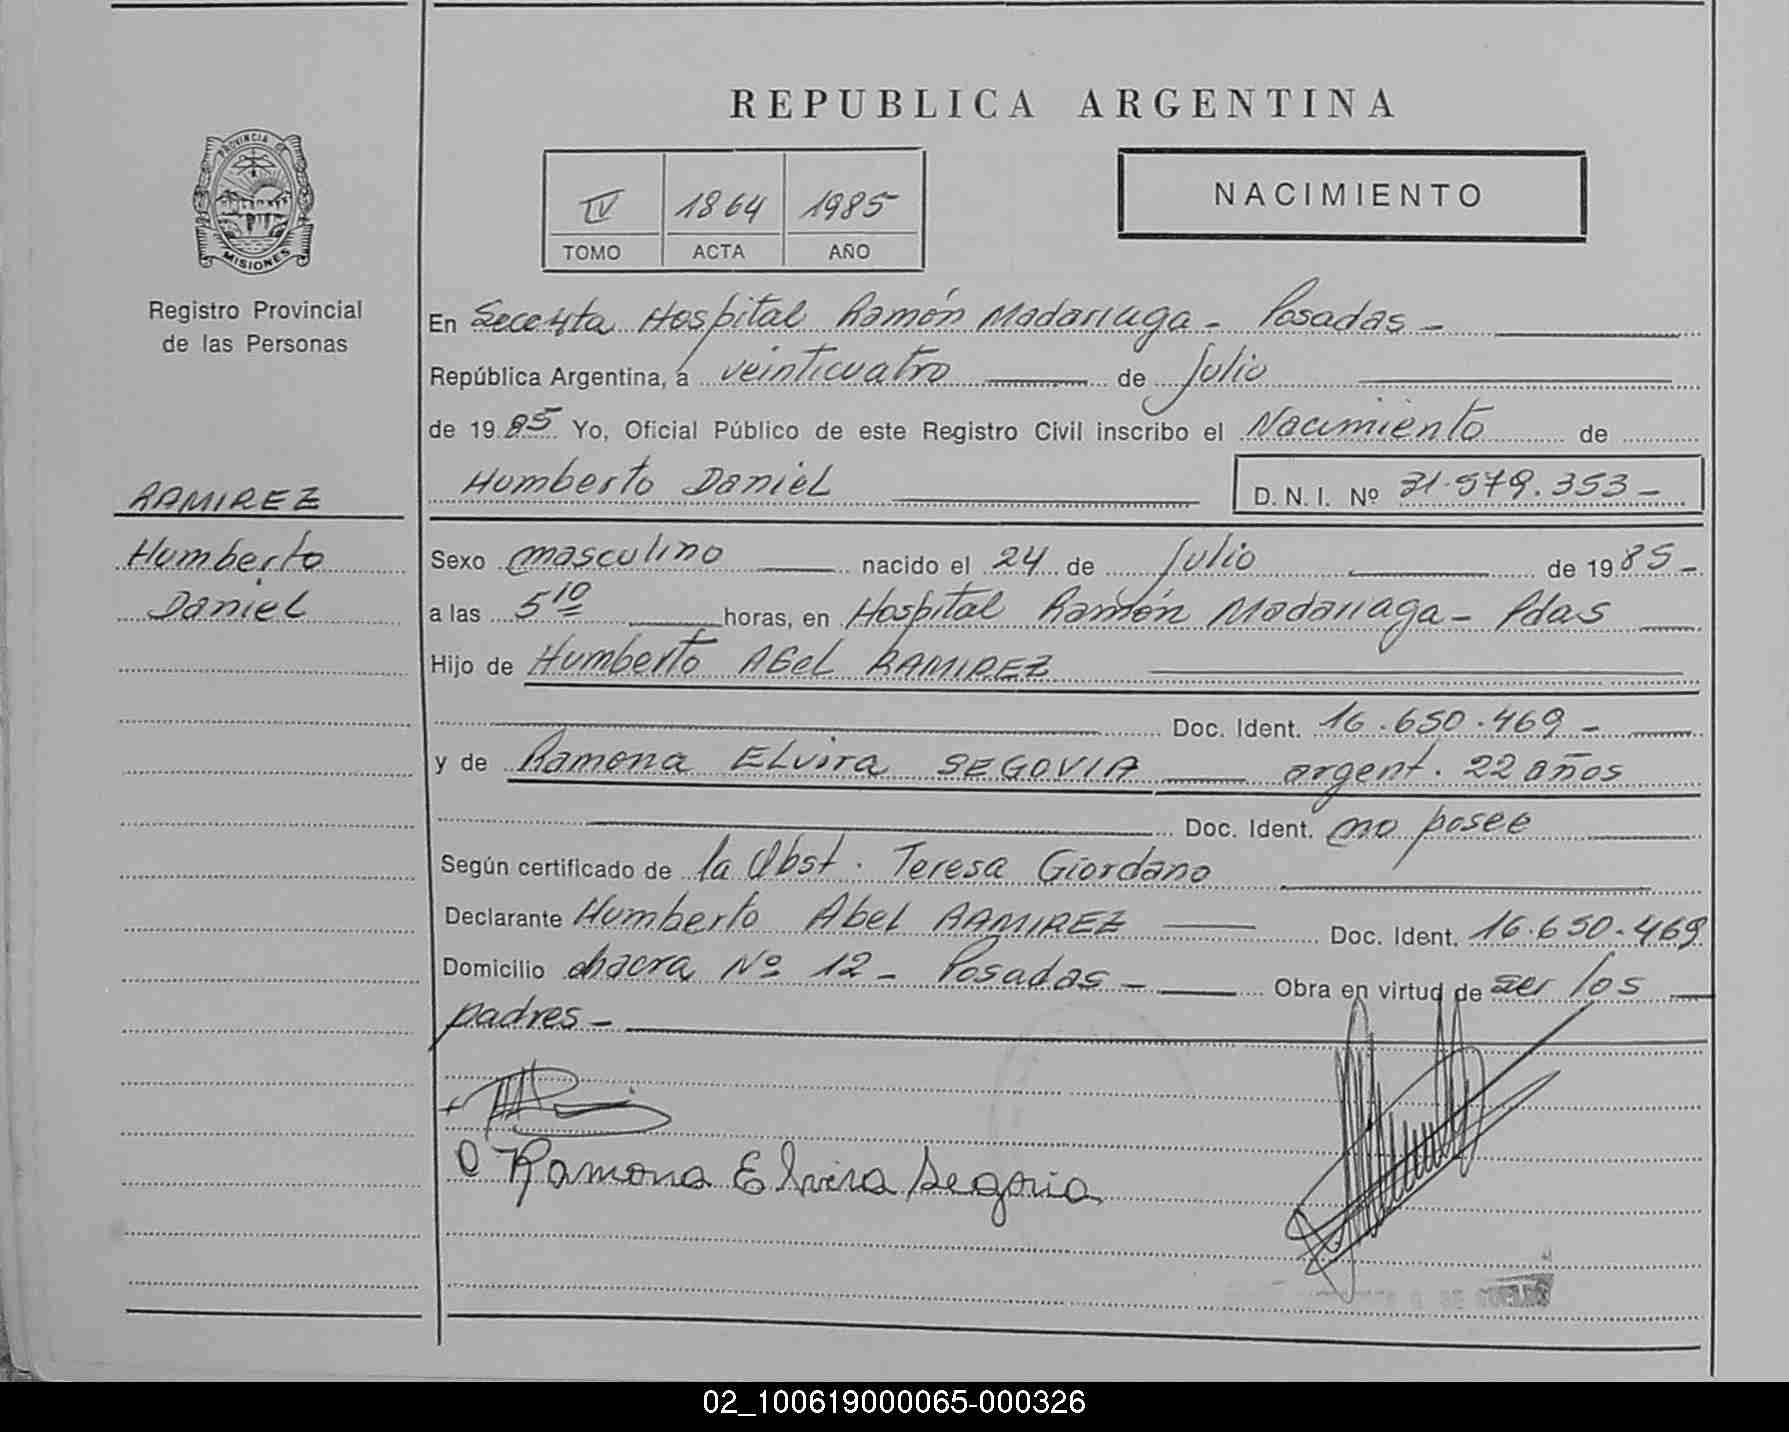 REPUBLICA ARGENTINA
PROVINCIA DE
MISIONES
Registro Provincial
de las Personas
IV 1864 1985
TOMO ACTA AÑO
NACIMIENTO
En Secc 4ta Hospital Ramón Madariaga - Posadas -
República Argentina, a veinticuatro de Julio
de 1985 Yo, Oficial Público de este Registro Civil inscribo el Nacimiento de
Humberto Daniel D. N. I. Nº 31.579.353-
RAMIREZ
Humberto
Daniel
Sexo masculino nacido el 24 de Julio de 1985-
a las 5 10 horas, en Hospital Ramón Madariaga - Pdas
Hijo de Humberto Abel RAMIREZ
Doc. Ident. 16.650.469-
y de Ramona Elvira SEGOVIA argent. 22 años
Doc. Ident. no posee
Según certificado de la Obst. Teresa Giordano
Declarante Humberto Abel RAMIREZ Doc. Ident. 16.650.469
Domicilio chacra Nº 12 - Posadas - Obra en virtud de ser los
padres -
Ramona Elvira Segovia
02_100619000065-000326